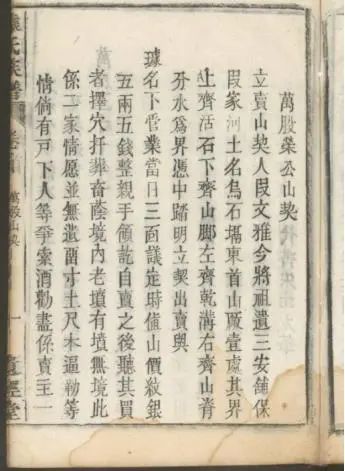 萬股榮公山契
立賣山契人段文雅今將祖遺三安鋪保
段家河土名烏石塥東首山厰壹處其界
上齊活石下齊山脚左齊乾溝右齊山脊
分水爲界憑中踏明立契出賣與
璩名下管業當日三面議定時值山價紋銀
五兩五錢整親手領訖自賣之後聽其買
者擇穴扦葬畜蔭境內老墳有墳無境此
係二家情愿並無遺畱寸土尺木逼勒等
情倘有戸下人等爭索酒勸盡係賣主一
璩氏族譜
卷首
萬股山契
一
堂